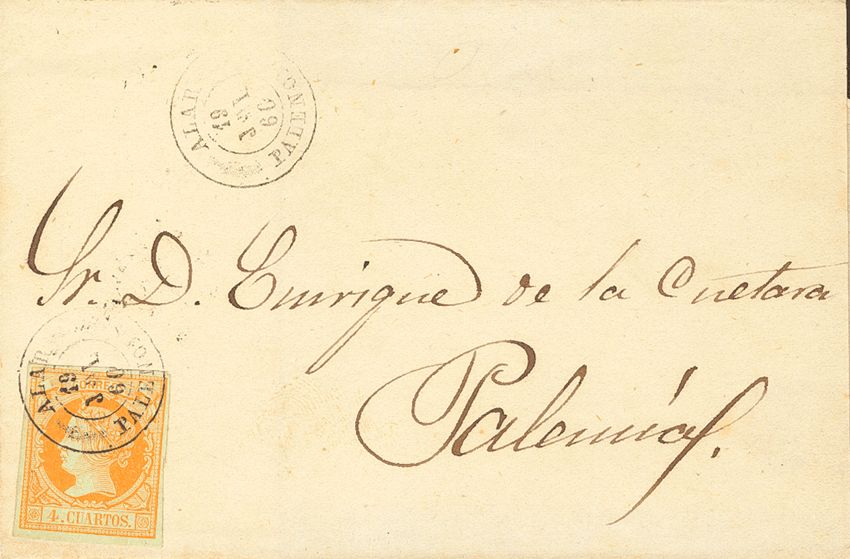 ALAR
PALEN
19
JUL
60
Sr. D. Enrique de la Cuetara
Palencia.
ALAR
PALE
19
JUL
60
CORREOS
4. CUARTOS.